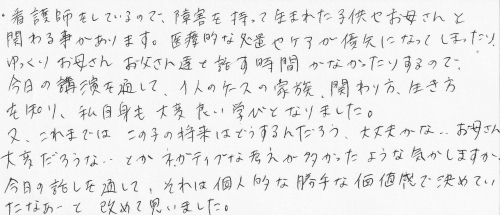 ・看護師をしているので、障害を持って生まれた子供やお母さんと
関わる事があります。医療的な処置やケアが優先になってしまったり、
ゆっくりお母さん お父さん達と話す時間がなかったりするので、
今日の講演を通して、1人のケースの家族、関わり方、生き方
を知り、私自身も大変良い学びとなりました。
又、これまでは この子の将来はどうするんだろう、大丈夫かな‥お母さん
大変だろうな‥とかネガティブな考えが多かったような気がしますが、
今日の話しを通して、それは個人的な勝手な価値感で決めてい
たなあーと 改めて思いました。